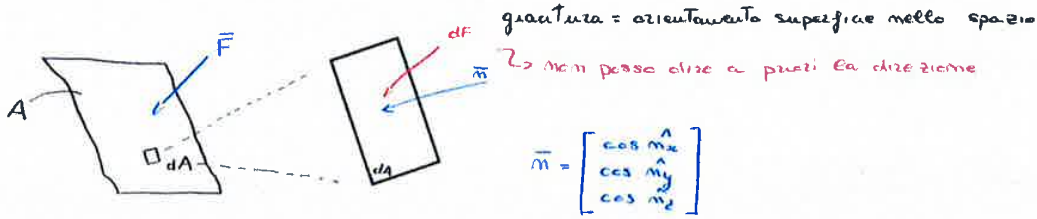 giacitura = orientamento superficie nello spazio
↳ non posso dire a priori la direzione
F̅
A
dA
dF
n̅
dA
n̅ = [ cos n̂x
cos n̂y
cos n̂z ]